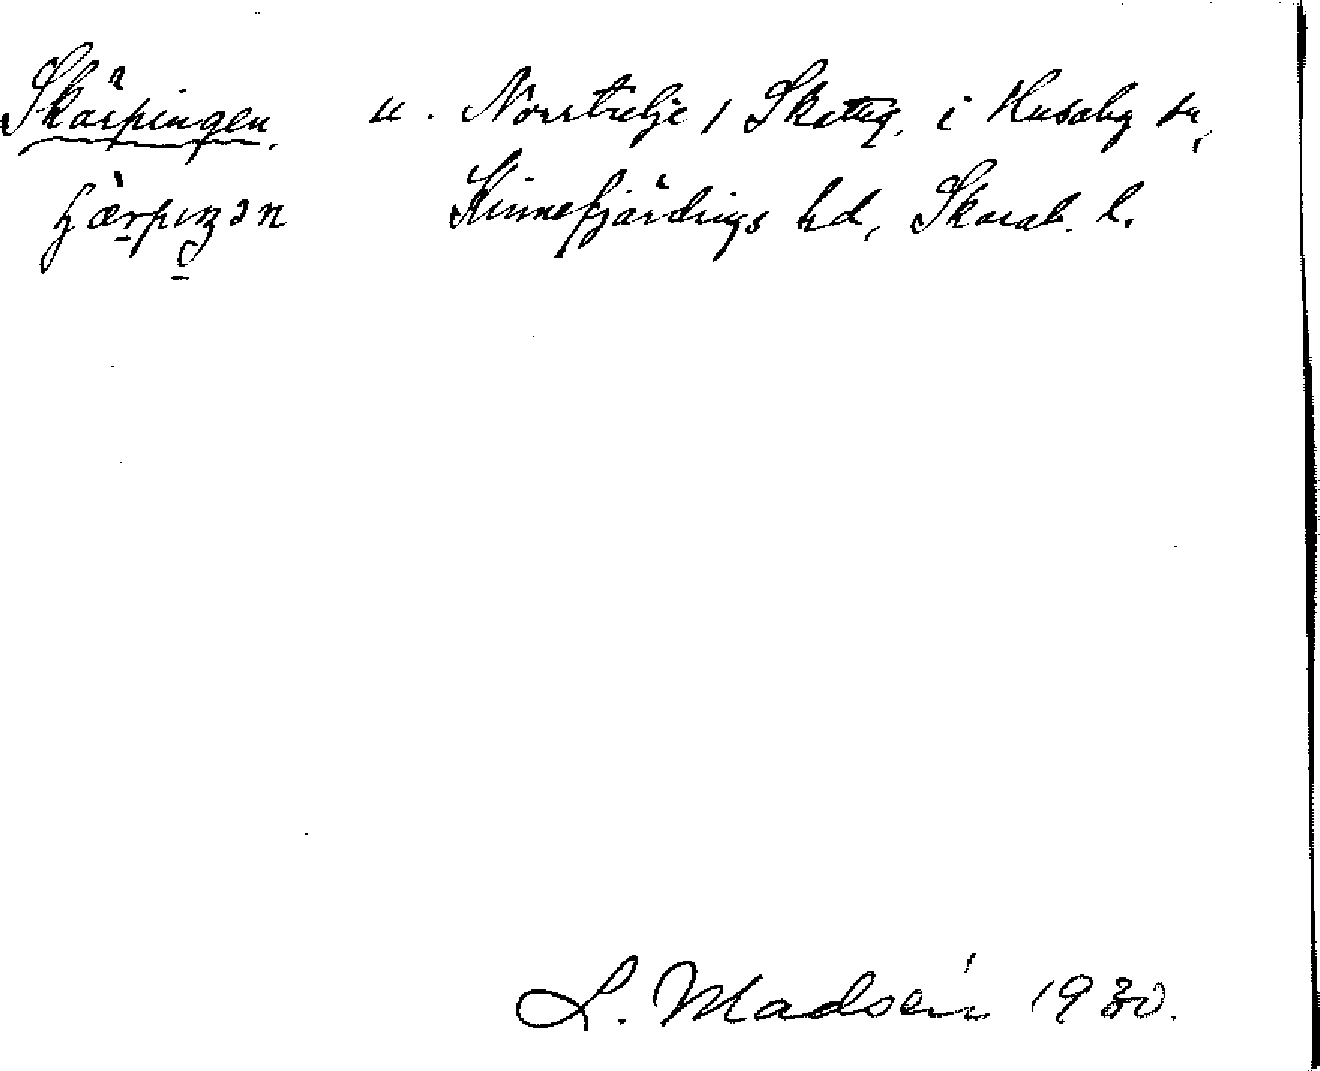 Skärpingen u. Norrtelje / Skatteg. i Husaby sn,
Kinnefjärdings hd, Skarab. l.
L. Madsén 1930.